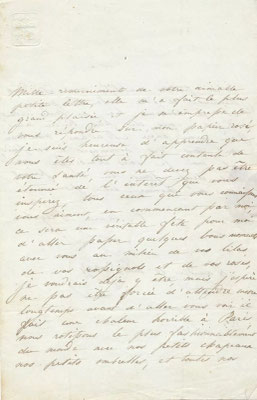 Mille remerciments de votre aimable
petite lettre, elle m'a fait le plus
grand plaisir et je m'empresse de
vous répondre sur mon papier rosé
je suis heureuse d'apprendre que
vous êtes tout à fait contente de
votre santé, vous ne devez pas être
étonnée de l'interet que vous
inspirez, tous ceux qui vous connaissent
vous aiment, en commencant par moi
ce sera une véritable fête pour moi
d'aller passer quelques bons moments
avec vous au milieu de vos lilas
de vos rossignols et de vos roses,
je voudrais déjà y être mais j'espère
ne pas être forcée d'attendre encore
longtemps avant d'aller vous voir il
fait une chaleur horrible à Paris
nous rotissons le plus fashionablement
du monde avec nos petits chapeaux
nos petites ombrelles, et toutes nos